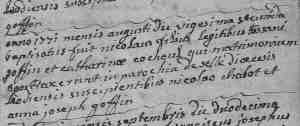 goffin
anno 1771 mensis augusti die vigesima secunda
baptisatus fuit nicolaus filius legitimus toussani
goffin et catharinae cocheux qui matrimonium
contraxerunt in parochia de selle dioecesis
leodiensis suscipientibus nicolao chabot et
anna joseph goffin
septembris die duodecima
josephus